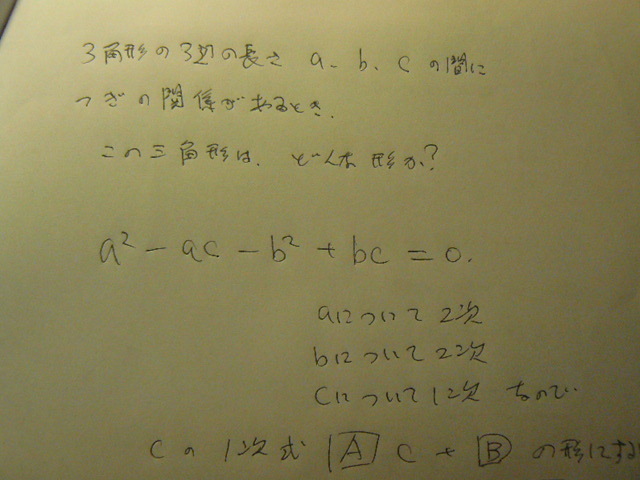 3角形の3辺の長さ a、b、c の間に
つぎの関係があるとき.
この三角形は、どんな形か?
a² - ac - b² + bc = 0.
aについて2次
bについて2次
cについて1次 なので
cの1次式 A c + B の形にする